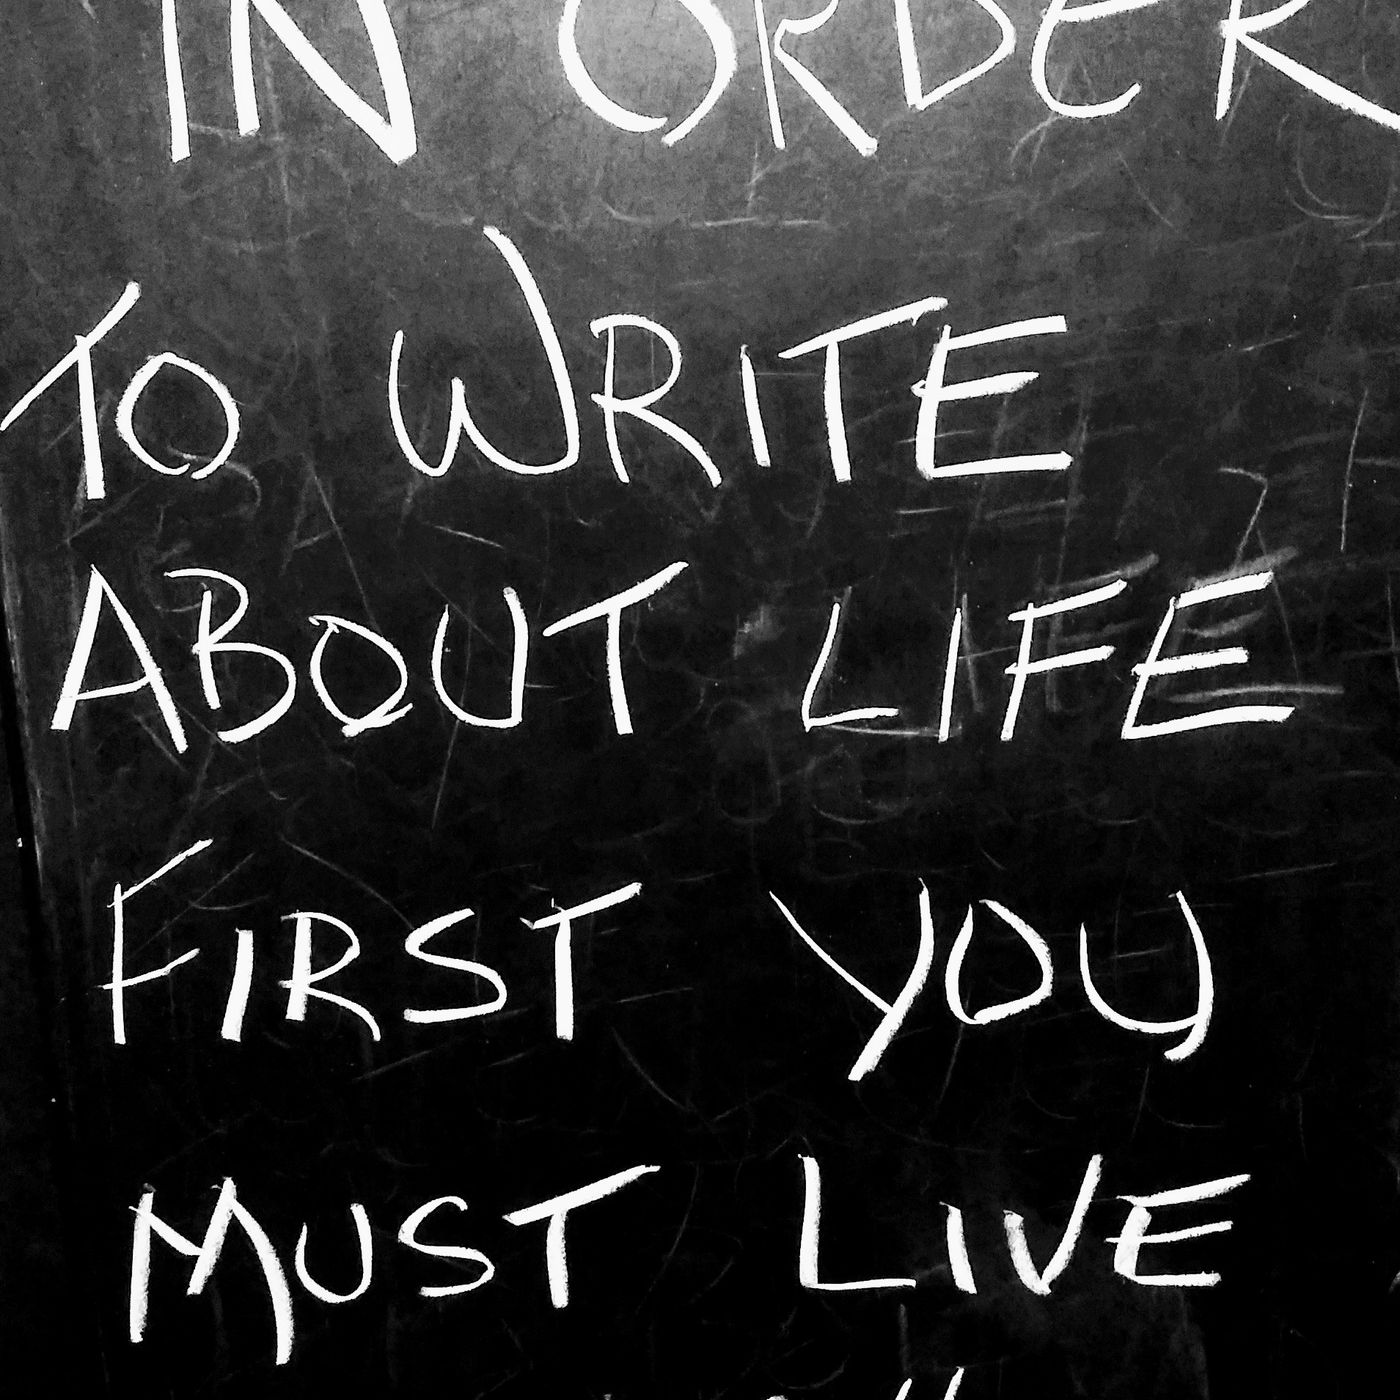 IN ORDER
TO WRITE
ABOUT LIFE
FIRST YOU
MUST LIVE